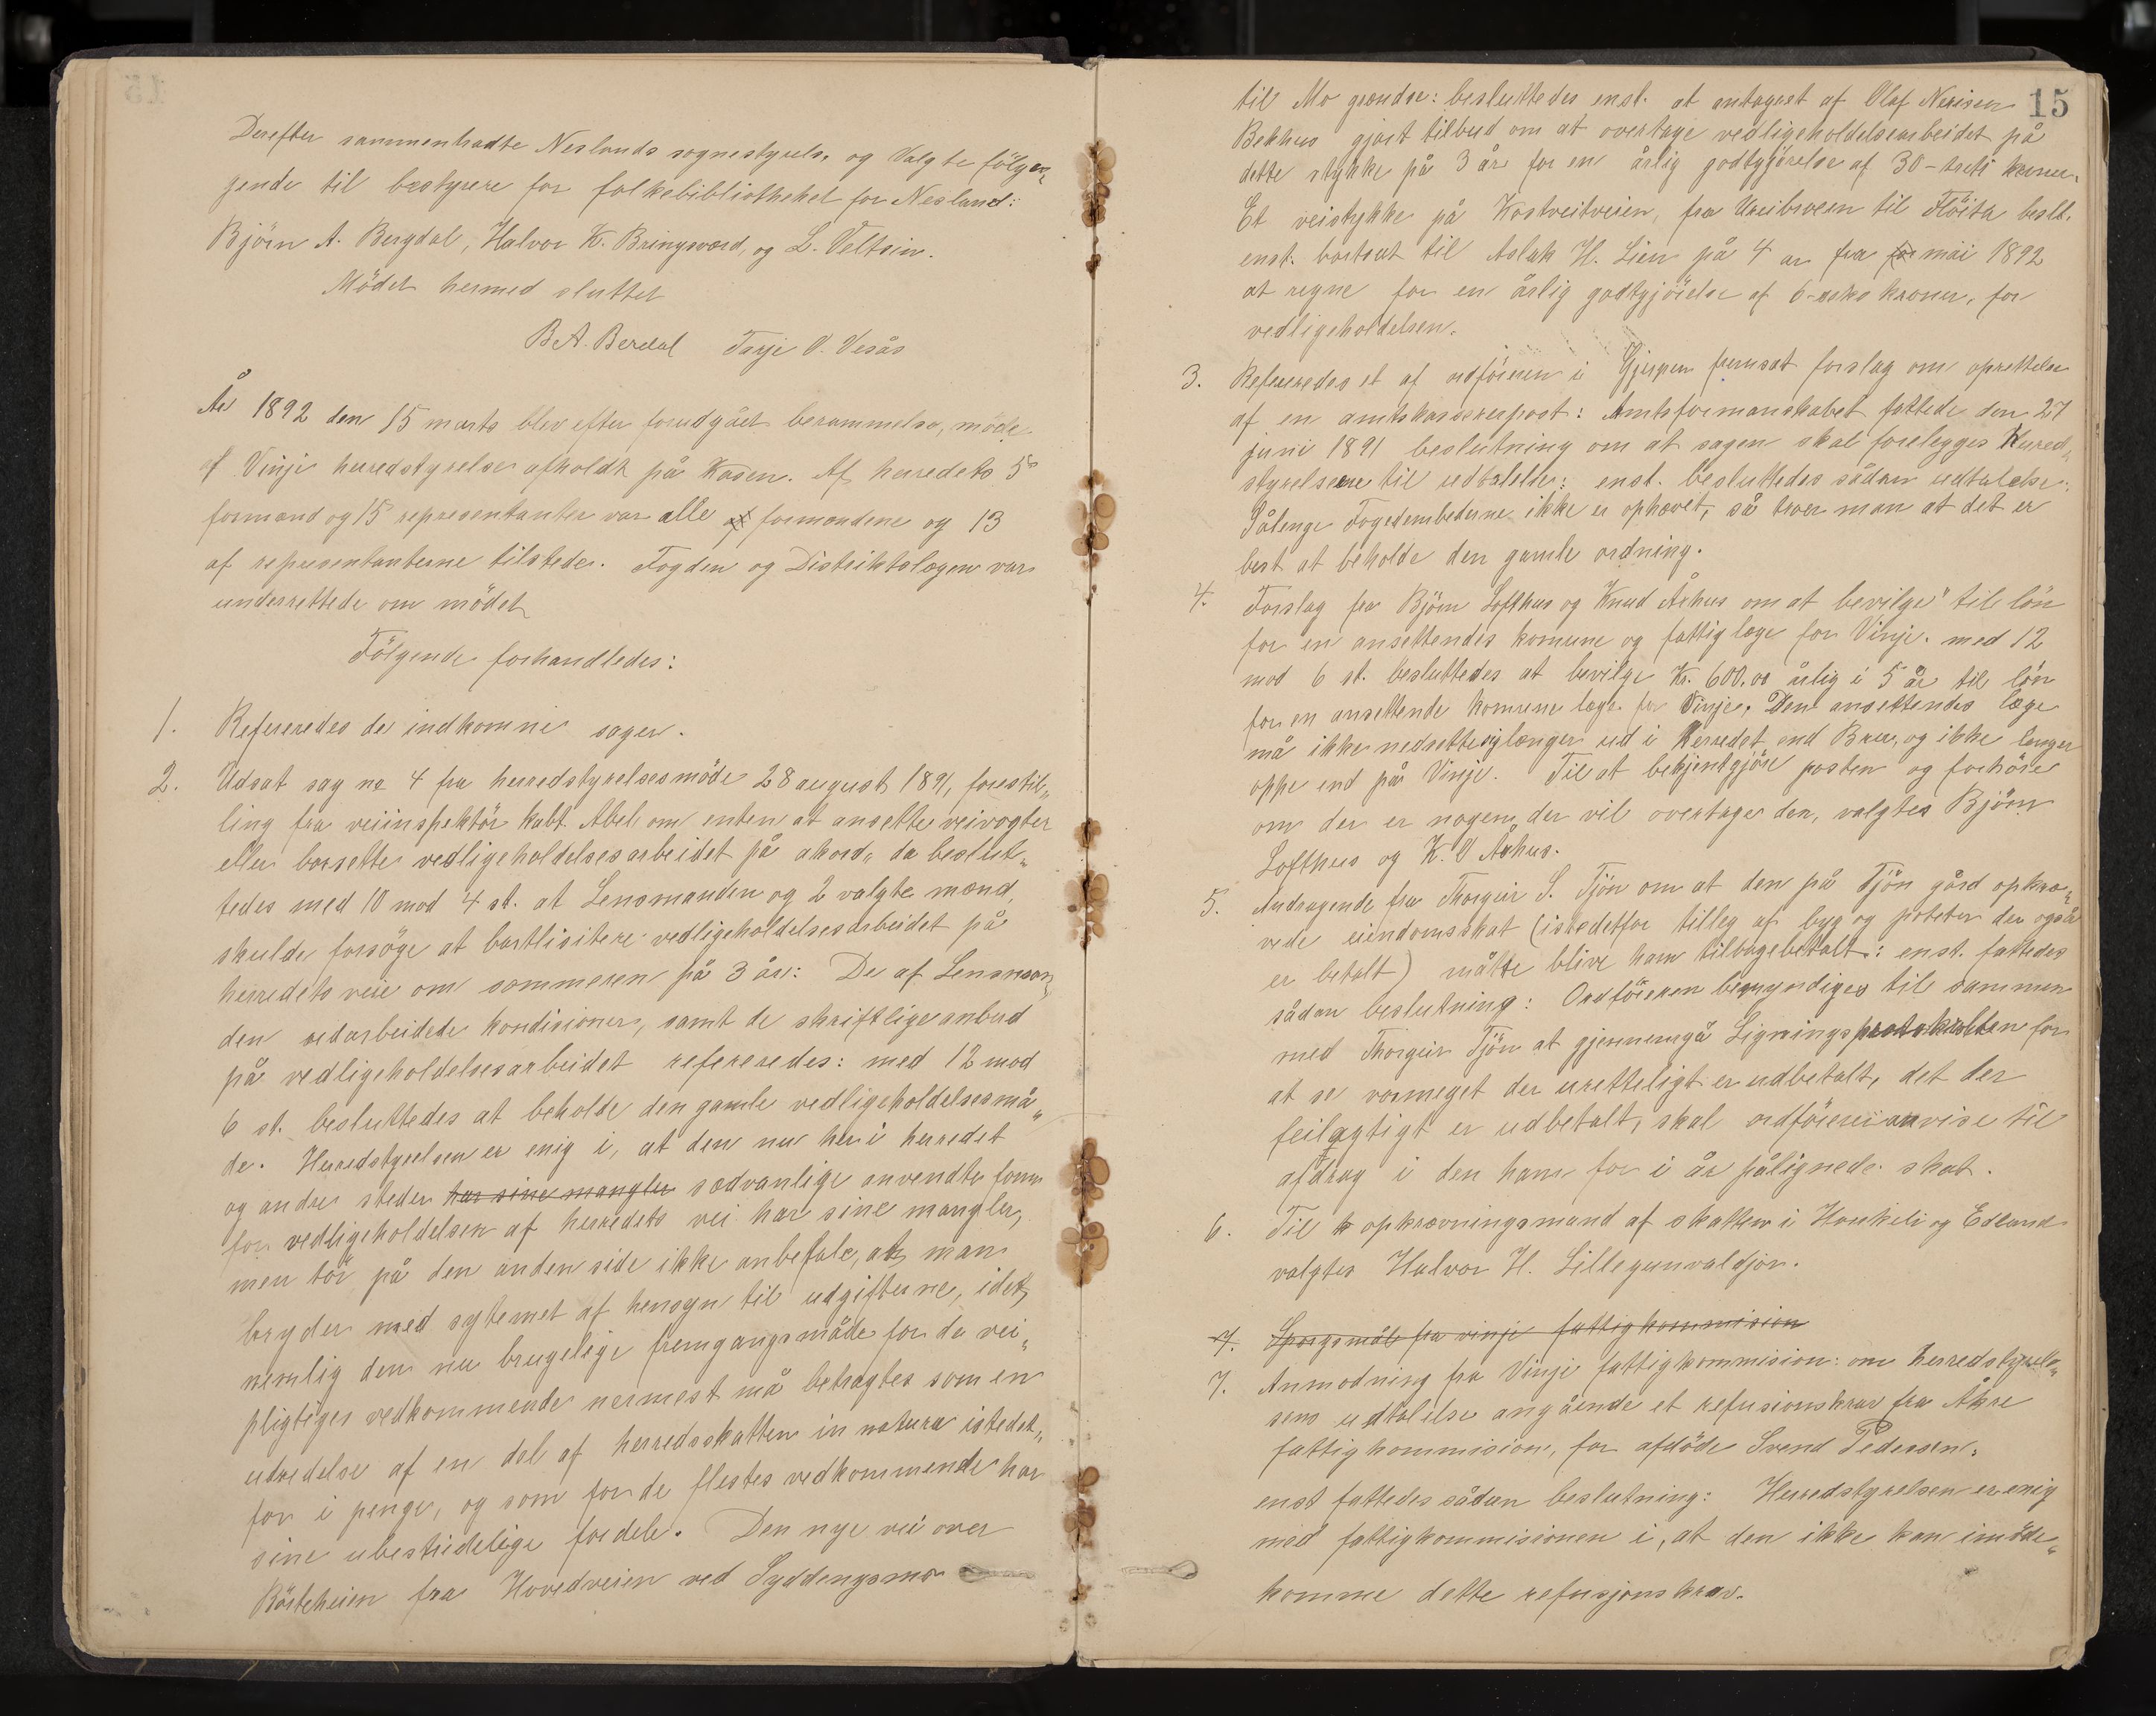 Derefter sammentraadte Neslands sognestyrelse og Valgte fölgen„
gende til bestyrere for folkebibliothehet for Nesland:
Björn A. Bergdal, Halvor K. Bringsværd, og L. Veltsin.
Mödet hermed sluttet
B.A. Berdal Tarje V. Vesås
År 1892 den 15 marts blev efter forudgået berammelse, möde
af Vinje herredstyrelse afholdt på Kåsen. Af herredets 5
formænd og 15 representanter var alle formændene og 13
af representanterne tilstede. Fogden og Distriktslægen var
underrettede om mödet
Fölgende forhandledes:
1. Refereredes de indkomne sager.
2. Udsat sag no 4 fra herredstyrelsesmöde 28 august 1891, forestil„
ling fra veiinspektör kabt. Abel om enten at ansette veivogter
eller borsette vedligeholdelsesarbeidet på akord„ da beslut„
tedes med 10 mod 4 st. at Lensmanden og 2 valgte mænd,
skulde forsöge at bortlisitere vedligeholdelsesarbeidet på
herredets veie om sommeren på 3 år: De af Lensman„
den udarbeidede kondisioner, samt de skriftlige anbud
på vedligeholdelsesarbeidet refereredes: med 12 mod
6 st. besluttedes at beholde den gamle vedligeholdelsesmå„
de. Herredstyrelsen er enig i, at den nu her i herredet
og andre steder har sine mangler sædvanlige anvendte form
for vedligeholdelsen af herredets vei har sine mangler,
men tör på den anden side ikke anbefale, at man
bryder med sytemet af hensyn til udgifterne, idet
nemlig den nu brugelige fremgangsmåde for de vei„
pligtiges vedkommende nermest må betragtes som en
utredelse af en del af herredsskatten in natura istedet„
for i penge, og som for de flestes vedkommende har
sine ubestridelige fordele. Den nye vei over
Börteheien fra Hovedveien ved Syddengsmo
15
til Mo grændse: besluttedes enst. at antaget af Olaf Nerisen
Bekhus gjort tilbud om at overtage vedligeholdelsesarbeidet på
dette stykke på 3 år for en årlig godtgjörelse af 30 - treti kroner.
Et veistykke på Kostveitveien, fra Kreibroen til Flöita beslt.
enst. bortsat til Aslak H. Lien på 4 ar fra mai 1892
at regne for en årlig godtgjörelse af 6 - seks kroner, for
vedligeholdelsen.
3. Refereredes et af ordföreren i Gjerpen fremsat forslag om oprettelse
af en amtskassererpost: Amtsformanskabet fattede den 27
juni 1891 beslutning om at sagen skal forelegges Herred„
styrelserne til udtalelse: enst. besluttedes sådan udtalelse:
Sålenge Fogedembederne ikke er ophævet, så tror man at det er
best at beholde den gamle ordning.
4. Forslag fra Björn Lofthus og Knud Århus om at bevilge til lön
for en ansettendes komune og fattiglæge for Vinje. med 12
mod 6 st. besluttedes at bevilge Kr. 600.00 årlig i 5 år til lön
for en ansettende komune læge for Vinje. Den ansettendes læge
må ikke nedsette sig længer ud i Herredet end Bruu, og ikke længer
oppe end på Vinje. Til at bekjentgjöre posten og forhöre
om der er nogen der vil overtage den, valgtes Björn
Lofthus og K. O Århus.
5. Andragende fra Thorgeir S. Tjön om at den på Tjön gård opkræ„
vede eiendomsskat (istedetfor tilleg af byg og poteter der også
er betalt) måtte blive ham tilbagebetalt: enst. fattedes
sådan beslutning: Ordföreren bemyndiges til sammen
med Thorgeir Tjön at gjennemgå Ligningsprotokollen for
at se vormeget der uretteligt er udbetalt, det der
feilagtigt er udbetalt, skal ordföreren anvise til
afdrag i den ham for i år pålignede skat.
6. Til opkrævningsmand af skatten i Haukeli og Edland
valgtes Halvor H. Lillegunvaldjor.
7. Sporgsmål fra vinje fattigkommision
7. Anmodning fra Vinje fattigkommision: om herredstyrel„
sens udtalelse angående et refusionskrav fra Åkre
fattigkommision, for afdöde Svend Pedersen:
enst fattedes sådan beslutning: Herredstyrelsen er enig
med fattigkommisionen i, at den ikke kan imöde„
komme dette refusjonskrav.